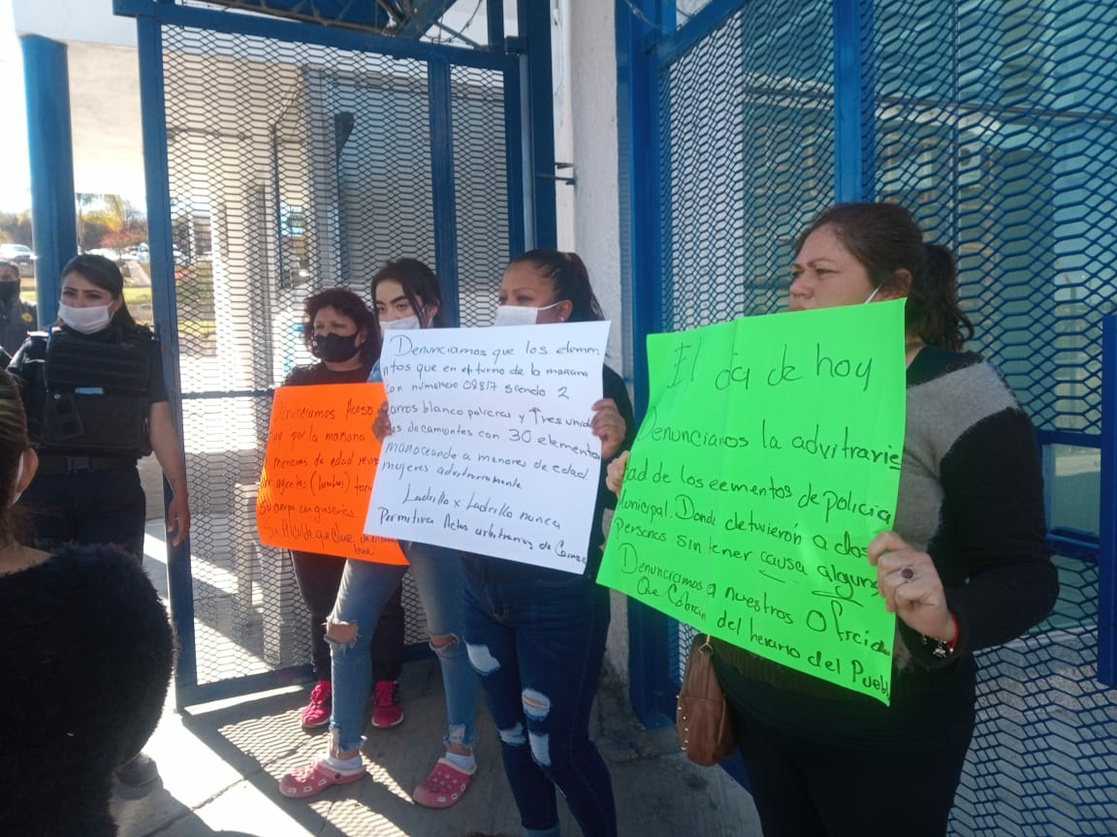 Denunciamos Acoso
hoy por la mañana
menores de edad
agentes (hombres)
su cuerpo con groserias
Denunciamos que los elemen
ntos que en el turno de la mañana
con numerero 08817 siendo 2
carros blanco policias y Tres unida
des de camiontes con 30 elementos
manoceando a menores de edad
mujeres advitrariamente
Ladrillo x Ladrillo nunca
Permitira Actos arbitrarios de
El día de hoy
Denunciamos la advitrarie
dad de los eementos de policia
Municipal. Donde detuvieron a dos
personas sin tener causa alguna
Denunciamos a nuestros Oficia
Que Cobran del herario del Pueblo